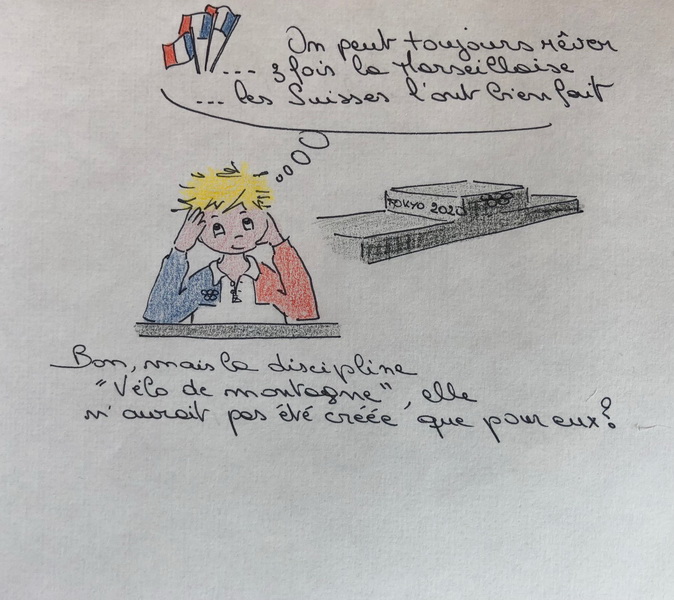 On peut toujours rêver
... 3 fois la Marseillaise
... les Suisses l'ont bien fait
TOKYO 2020
Bon, mais la discipline
"Vélo de montagne", elle
n'aurait pas été créée que pour eux?